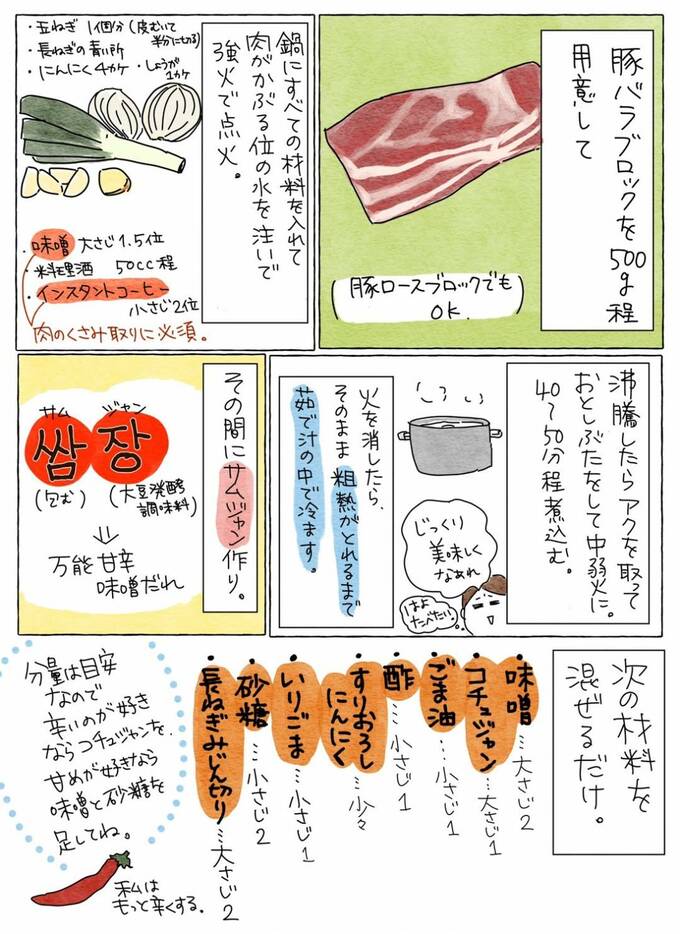 豚バラブロックを500g程
用意して
豚ロースブロックでも
OK.
鍋にすべての材料を入れて
肉がかぶる位の水を注いで
強火で点火。
・玉ねぎ 1個分(皮むいて
半分に切る)
・長ねぎの青い所
・にんにく4カケ ・しょうが
1カケ
・味噌 大さじ1.5位
・料理酒 50cc程
・インスタントコーヒー
小さじ2位
肉のくさみ取りに必須。
沸騰したらアクを取って
おとしぶたをして中弱火に。
40〜50分程煮込む。
じっくり
美味しく
なあれ
はよ
たべたい
火を消したら、
そのまま粗熱がとれるまで
茹で汁の中で冷ます。
その間にサムジャン作り。
サム ジャン
쌈장
(包む)
(大豆発酵
調味料)
万能 甘辛
味噌だれ
次の材料を
混ぜるだけ。
・味噌…大さじ2
・コチュジャン…大さじ1
・ごま油…小さじ1
・酢…小さじ1
・すりおろし
にんにく…少々
・いりごま…小さじ1
・砂糖…小さじ2
・長ねぎみじん切り…大さじ2
分量は目安
なので
辛いのが好き
ならコチュジャンを、
甘めが好きなら
味噌と砂糖を
足してね。
私は
もっと辛くする。